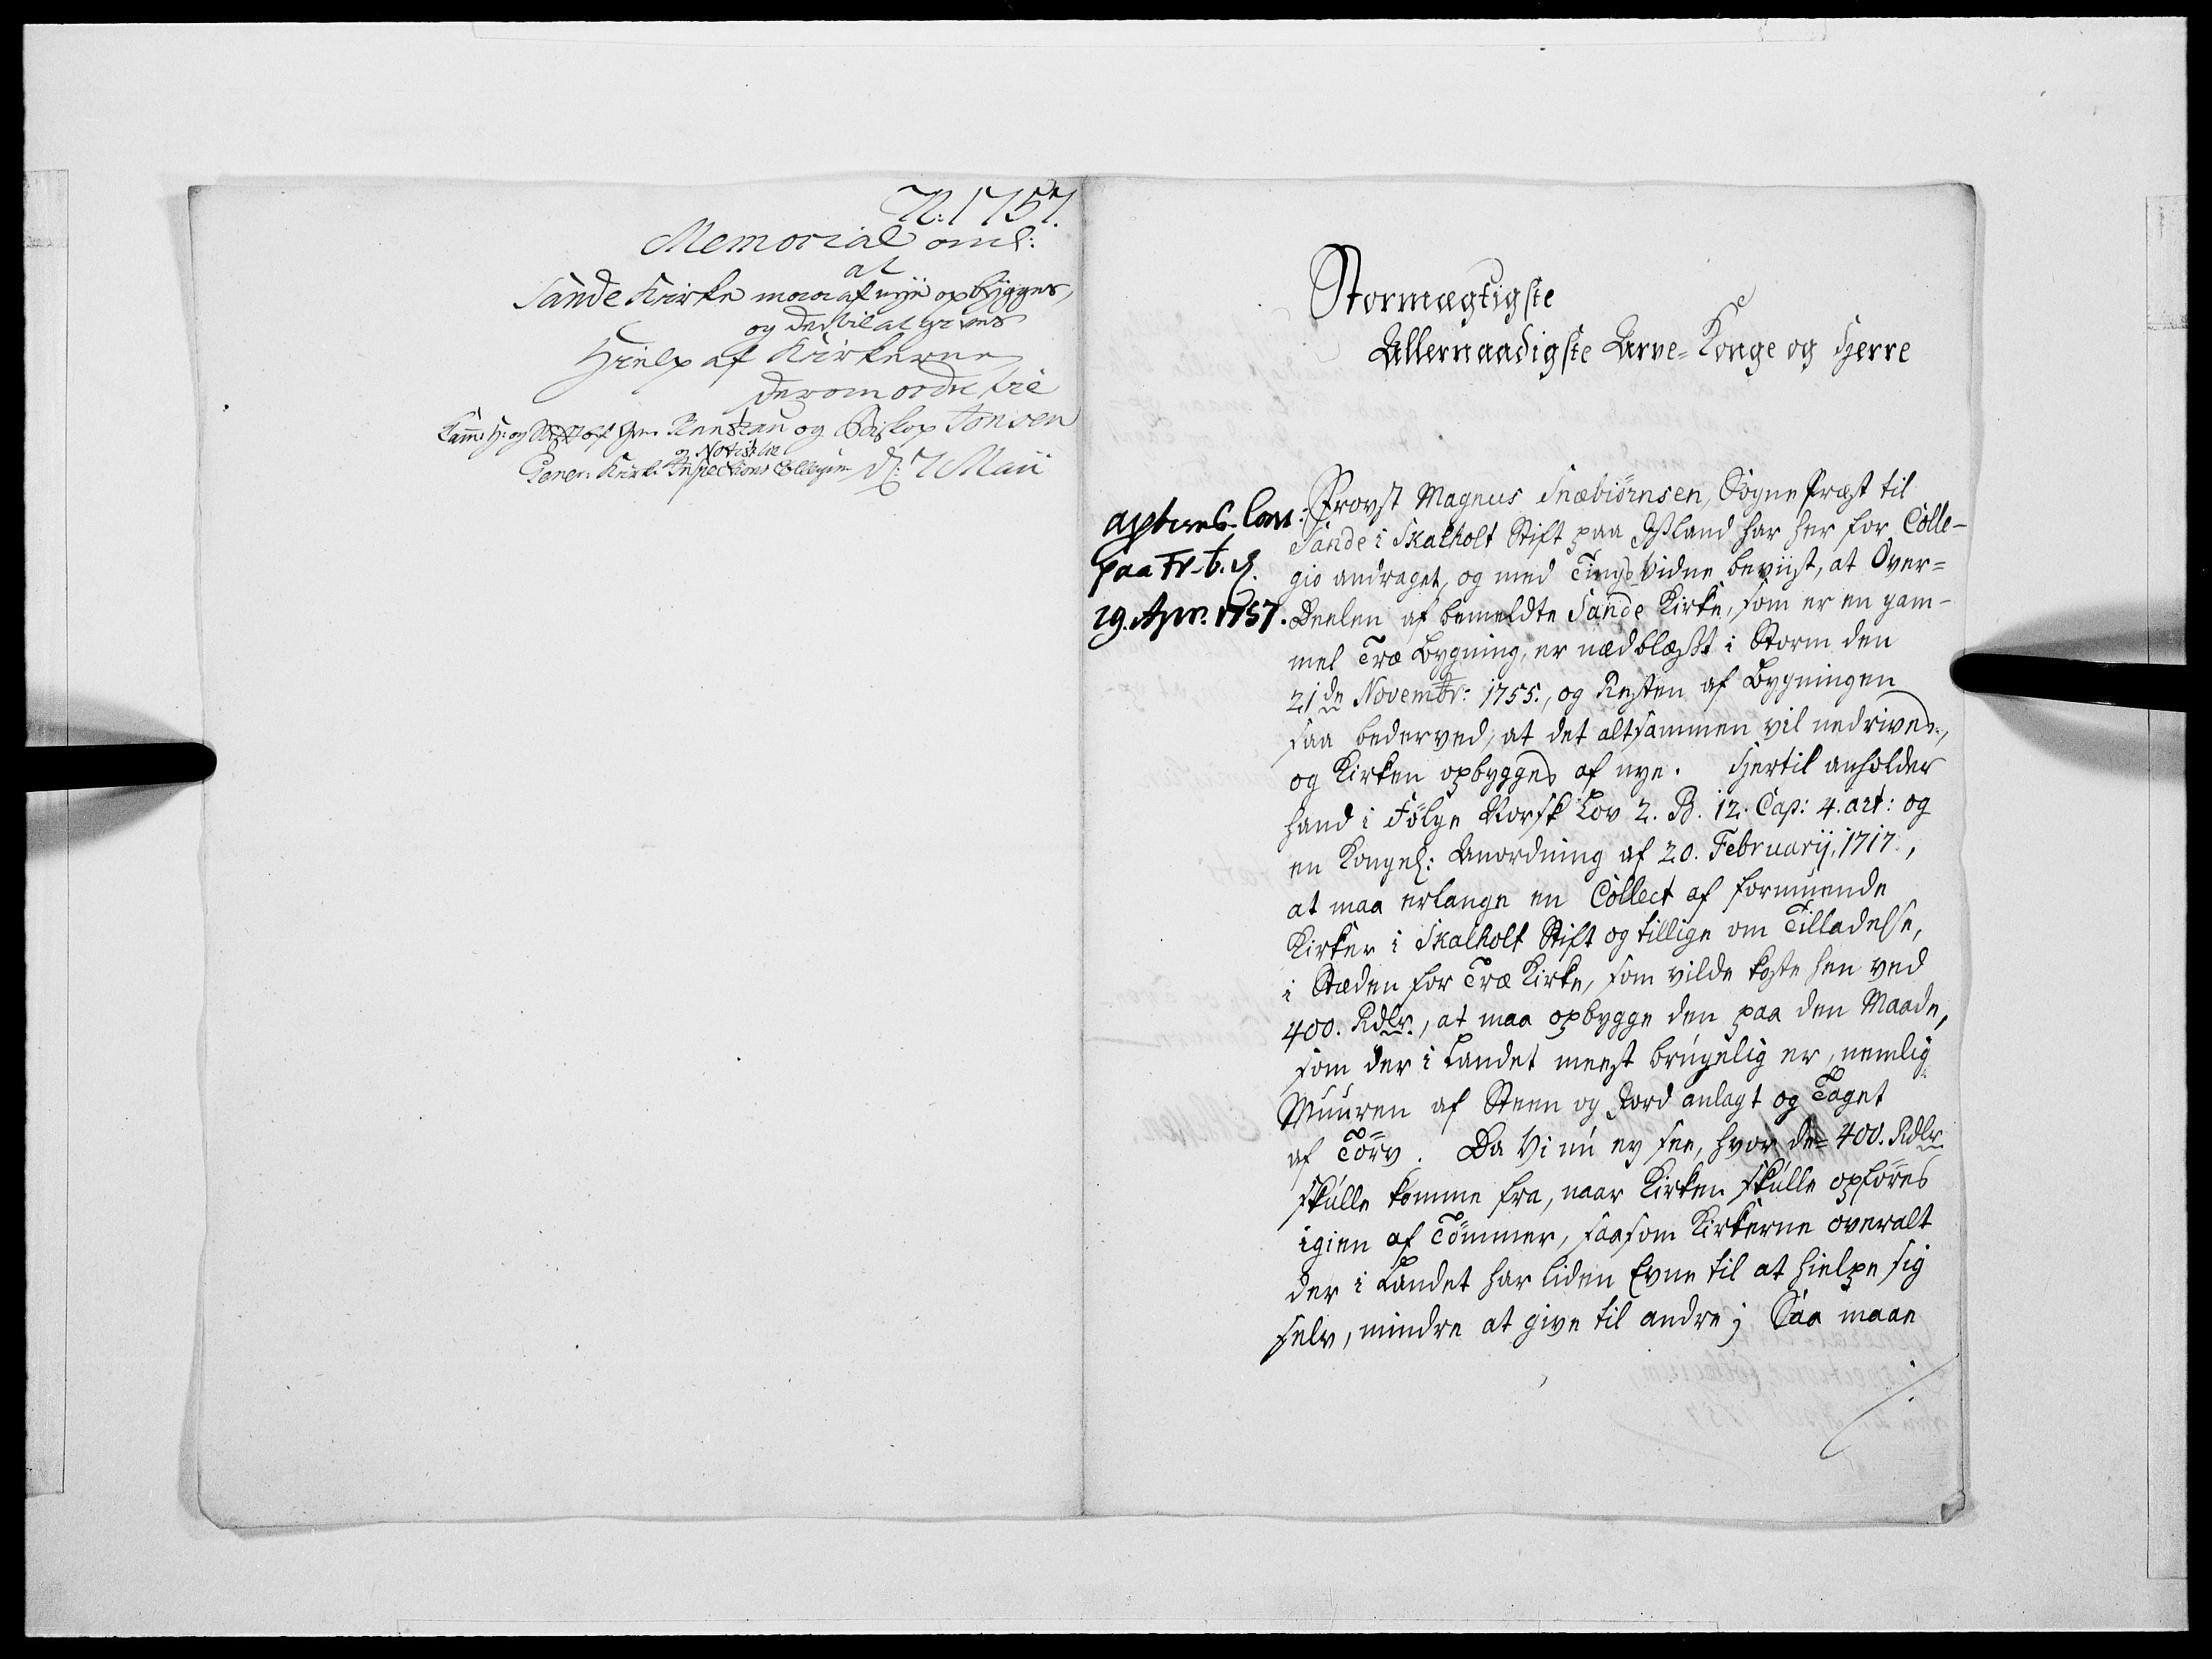 N: 1757.
Memorial anl:
at
Sande Kirke maa af nye opbygges,
og dertil at gives
Hielp af Kirkerne
derom ordre til
Cam: H: og Stiftbef: Gr. Rantzau og Biskop Jonsen
og Notice til
Gener. Kirke Inspections Collegium d: 7 Maii
Stormægtigste
Allernaadigste Arve-Konge og Herre
approb. Com:
paa Fr-b. d.
29. Apr. 1757.
Provst Magnus Snæbiörnsen, Sogne Præst til
Sande i Skalholt Stift paa Iisland har her for Colle-
gio andraget, og med Tings Vidne beviist, at Over-
Deelen af bemeldte Sande Kirke, som er en gam-
mel Træ Bygning, er nedblæst i Storm den
21de Novembr: 1755., og Resten af Bygningen
saa bederved, at det altsammen vil nedrives,
og Kirken opbygges af nye. Hertil anholder
hand i Fölge Norsk Lov 2. B. 12. Cap: 4. art: og
en Kongel: Anordning af 20. Februarij, 1717.,
at maa erlange en Collect af formuende
Kirker i Skalholt Stift og tillige om Tilladelse,
i Stæden for Træ Kirke, som vilde koste hen ved
400. Rdlr., at maa opbygge den paa den Maade,
som der i Landet meest brugelig er, nemlig
Muuren af Steen og Jord anlagt og Taget
af Törv. Da Vi nu ey see, hvor de 400. Rdlr
skulle komme fra, naar Kirken skulle opföres
igien af Tömmer, saasom Kirkerne overalt
der i Landet har liden Evne til at hielpe sig
selv, mindre at give til andre; Saa maae